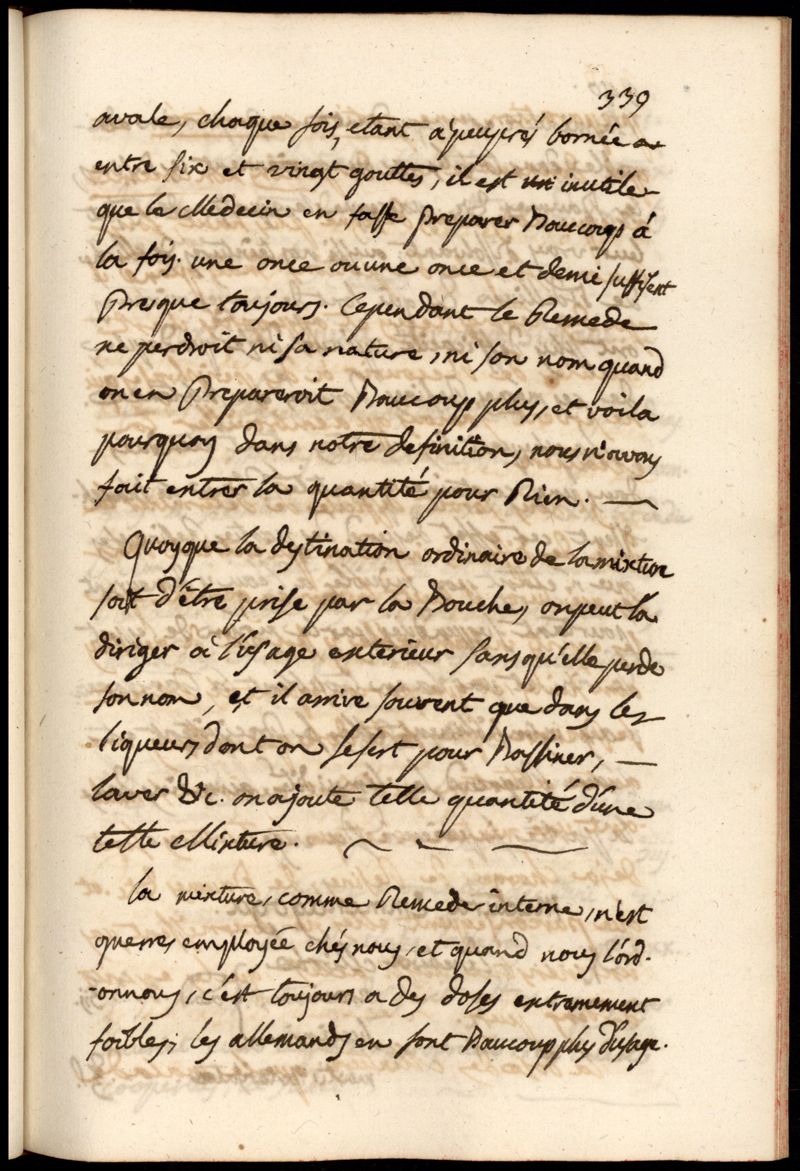 339
avale, chaque fois, etant à peuprés bornée a
entre six et vingt gouttes, il est inutile
que le Medecin en fasse preparer Baucoup à
la fois. une once ou une once et demi suffisent
Presque toujours. Cependant le Remede
ne perdroit ni sa nature, ni son nom quand
on en Prepareroit Baucoup plus, et voila
pourquoy dans notre definition, nous n'avons
fait entrer la quantité pour Rien. —
Quoyque la destination ordinaire de la mixture
soit d'être prise par la Bouche, on peut la
diriger à l'usage exterieur sans qu'elle perde
son nom, et il arrive souvent que dans les
liqueurs dont on se sert pour Bassiner, —
laver &c. on ajoute telle quantité d'une
telle Mixture. ~ - —
la mixture, comme Remede interne, n'est
guerres employée chés nous, et quand nous l'ord-
-onnons, c'est toujours a des doses extremement
foibles; les allemands en font Baucoup plus d'usage.